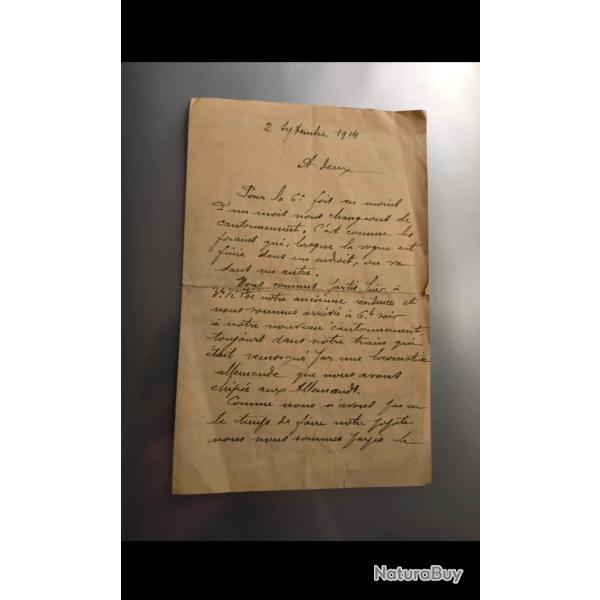 2 Septembre 1914
A deux
Pour la 6e fois en moins
d'un mois nous changeons de
cantonnement. C'est comme les
forains qui, lorsque la vogue est
finie dans un endroit, on va
dans un autre.
Nous sommes partis hier à
3h 1/2 de notre ancienne résidence et
nous sommes arrivés à 6h soir
à notre nouveau cantonnement
toujours dans notre train qui
était remorqué par une locomotive
allemande que nous avons
chipée aux Allemands.
Comme nous n'avons pas eu
le temps de faire notre popote
nous nous sommes payés le
NaturaBuy